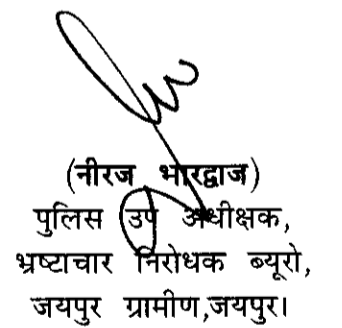 (नीरज भारद्वाज)
पुलिस उप अधीक्षक,
भ्रष्टाचार निरोधक ब्यूरो,
जयपुर ग्रामीण,जयपुर।